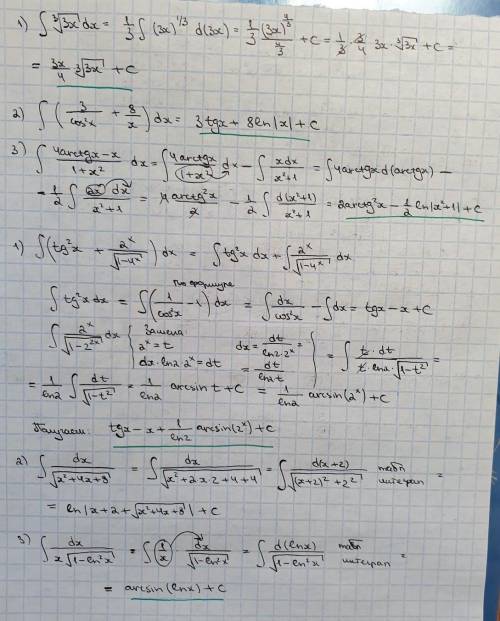 1) ∫ ∛(3x) dx = 1/3 ∫ (3x)^(1/3) d(3x) = 1/3 (3x)^(4/3)/(4/3) + C = 1/3 · 3/4 3x · ∛(3x) + C =
= 3x/4 ∛(3x) + C
2) ∫ (3/cos²x + 8/x) dx = 3tgx + 8ln|x| + C
3) ∫ (4arctgx − x)/(1+x²) dx = ∫ 4arctgx/(1+x²) dx − ∫ xdx/(x²+1) = ∫ 4arctgx d(arctgx) −
− 1/2 ∫ 2x dx/(x²+1) = 4 arctg²x/2 − 1/2 ∫ d(x²+1)/(x²+1) = 2arctg²x − 1/2 ln|x²+1| + C
1) ∫ (tg²x + 2ˣ/√(1−4ˣ)) dx = ∫ tg²x dx + ∫ 2ˣ/√(1−4ˣ) dx
по формуле
∫ tg²x dx = ∫ (1/cos²x − 1) dx = ∫ dx/cos²x − ∫ dx = tgx − x + C
∫ 2ˣ/√(1−2²ˣ) dx { Замена 2ˣ = t dx · ln2 · 2ˣ = dt dx = dt/(ln2 · 2ˣ) = dt/(ln2 t) } = ∫ t · dt/(t · ln2 · √(1−t²)) =
= 1/ln2 ∫ dt/√(1−t²) = 1/ln2 arcsin t + C = 1/ln2 arcsin(2ˣ) + C
Получаем: tgx − x + 1/ln2 arcsin(2ˣ) + C
2) ∫ dx/√(x²+4x+8) = ∫ dx/√(x²+2x·2+4+4) = ∫ d(x+2)/√((x+2)²+2²) табл интеграл =
= ln|x+2+√(x²+4x+8)| + C
3) ∫ dx/(x√(1−ln²x)) = ∫ 1/x dx/√(1−ln²x) = ∫ d(lnx)/√(1−ln²x) табл интеграл =
= arcsin(lnx) + C